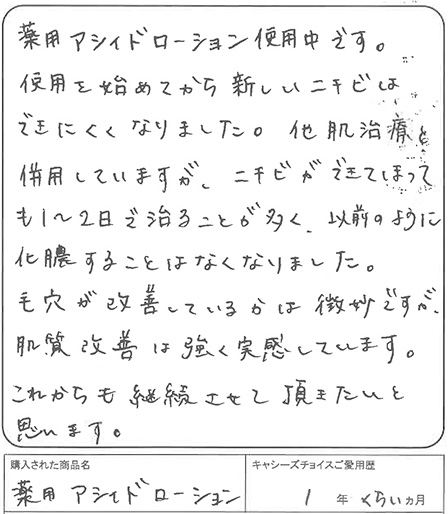 薬用アシィドローション使用中です。
使用を始めてから新しいニキビは
できにくくなりました。他肌治療と
併用していますが、ニキビができてしまって
も1〜2日で治ることが多く、以前のように
化膿することはなくなりました。
毛穴が改善しているかは微妙ですが、
肌質改善は強く実感しています。
これからも継続させて頂きたいと
思います。
購入された商品名
薬用アシィドローション
キャシーズチョイスご愛用歴
1年くらいヵ月